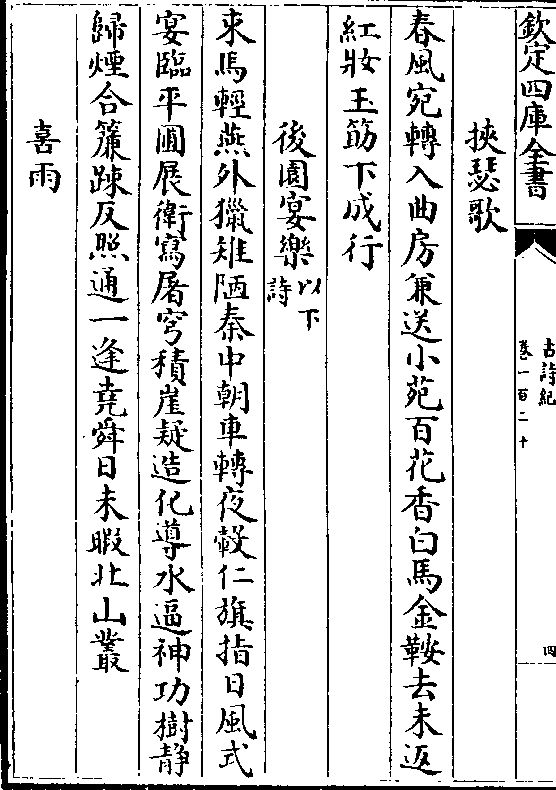 欽定四庫全書
古詩紀
卷一百二十
四
挾瑟歌
春風宛轉入曲房兼送小苑百花香白馬金鞍去未返
紅妝玉筯下成行
後園宴樂以下詩
束馬輕燕外獵雉陋秦中朝車轉夜轂仁旗指日風式
宴臨平圃展衛寫屠穹積崖疑造化導水逼神功樹静
歸煙合簾踈反照通一逢堯舜日未暇北山叢
喜雨